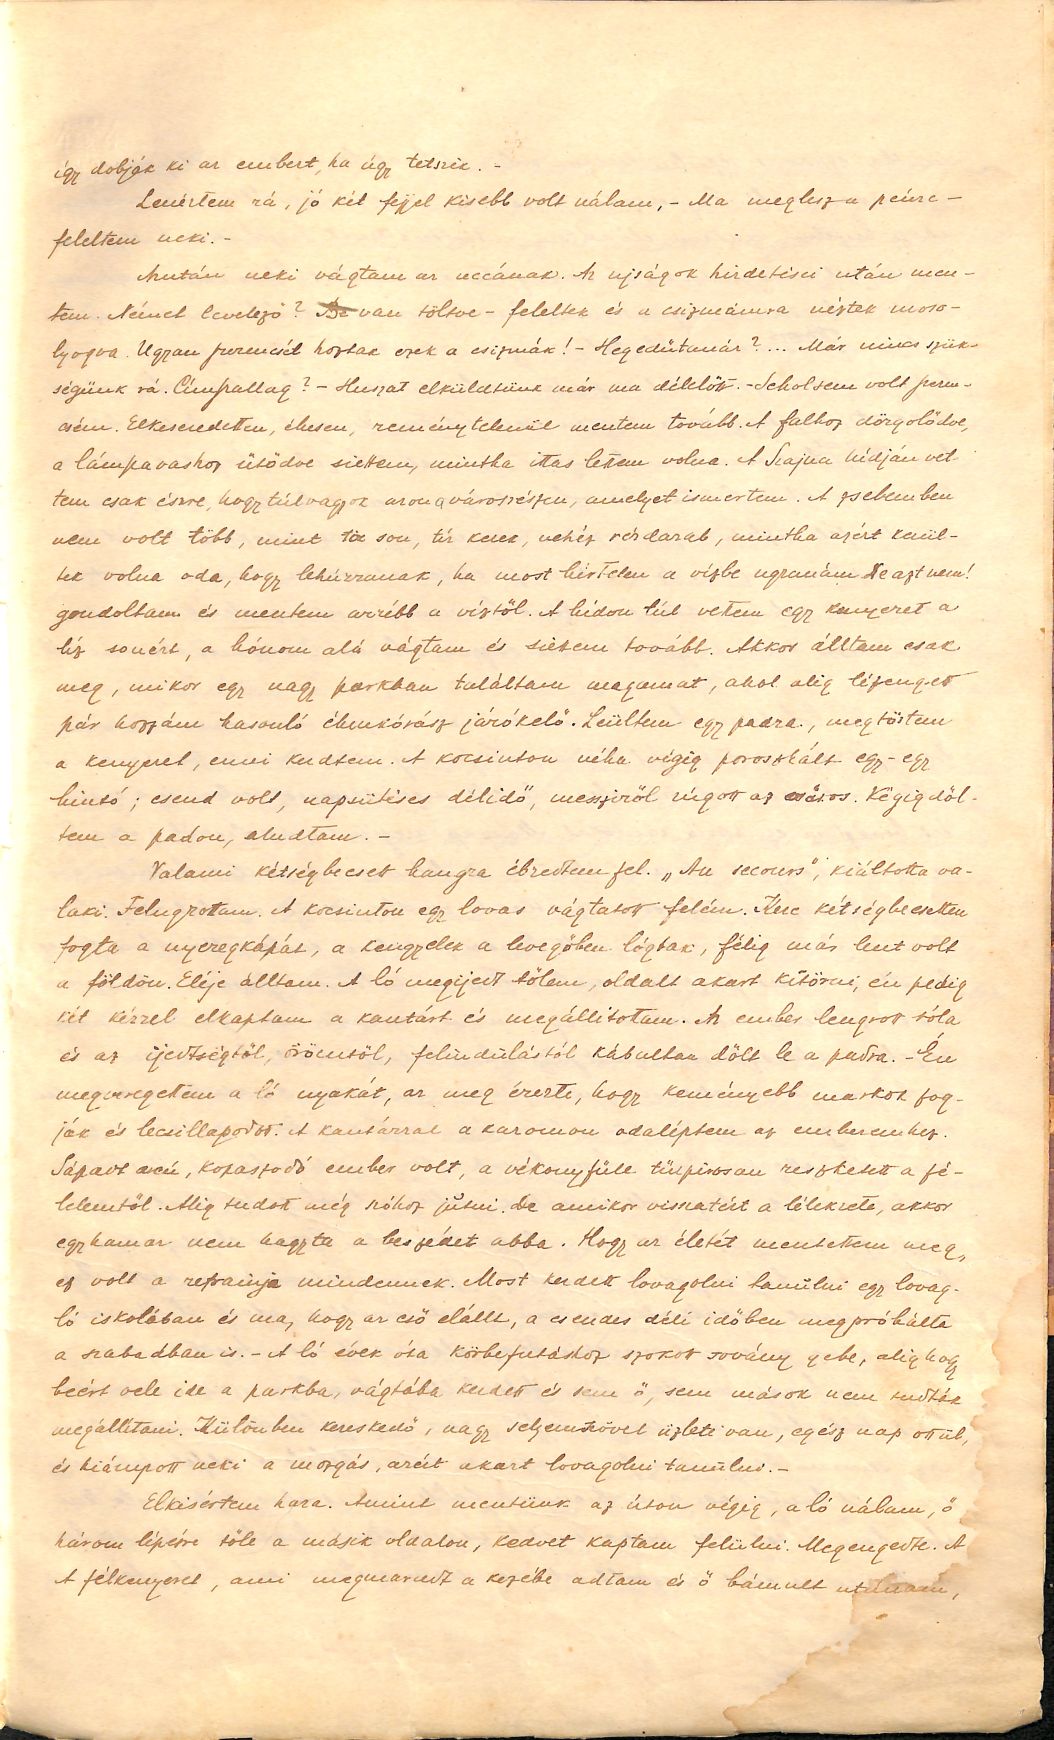 így dobják ki az embert, ha úgy tetszik. -
Lenéztem rá, jó két fejjel kisebb volt nálam, - Ma meglesz a pénze -
feleltem neki. -
Azután neki vágtam az uccának. Az ujságok hirdetései után men-
tem. Német levelező? Be van töltve - feleltek és a csizmámra néztek moso-
lyogva. Ugyan furencsék hoztak ezek a csizmák! - Hegedűtanár? ... Már nincs szük-
ségünk rá. Címfallag? - Huszat elküldtünk már ma délelőtt. - Sehol sem volt szeren-
csém. Elkeseredetten, éhesen, reménytelenül mentem tovább. A falhoz dörgölődve,
a lámpavashoz ütődve siettem, mintha ittas lettem volna. A Szajna hídján vet-
tem csak észre, hogy túl vagyok azon a városrészen, amelyet ismertem. A zsebemben
nem volt több, mint tíz sou, tíz kerek, nehéz rézdarab, mintha azért kerül-
tek volna oda, hogy lehúzzanak, ha most hirtelen a vízbe ugranám. De azt nem!
gondoltam és mentem arrébb a víztől. A hídon túl vettem egy kenyeret a
tíz souért, a hónom alá vágtam és siettem tovább. Akkor álltam csak
meg, mikor egy nagy parkban találtam magamat, ahol alig lézengett
pár hozzám hasonló éhenkórász járókelő. Leültem egy padra., megtörtem
a kenyeret, enni kezdtem. A kocsiuton néha végig poroszkált egy-egy
hintó; csend volt, napsütéses délidő, messziről zúgott az város. Végigdől-
tem a padon, aludtam. -
Valami kétségbeesett hangra ébredtem fel. „Au secours", kiáltotta va-
laki. Felugrottam. A kocsiuton egy lovas vágtatott felém. Keze kétségbeesetten
fogta a nyeregkápát, a kengyelek a levegőben lógtak, félig már lent volt
a földön. Eléje álltam. A ló megijedt tőlem, oldalt akart kitörni, én pedig
két kézzel elkaptam a kantárt és megállítottam. Az ember leugrott róla
és az ijedtségtől, örömtől, felindulástól kábultan dőlt le a padra. - Én
megveregettem a ló nyakát, az meg érezte, hogy keményebb markok fog-
ják és lecsillapodott. A kantárral a karomon odaléptem az emberemhez.
Sápadt arcú, kopaszodó ember volt, a vékonyfüle tűzpirosan reszketett a fé-
lelemtől. Alig tudott még szóhoz jutni. De amikor visszatért a lélekzete, akkor
egyhamar nem hagyta a beszédet abba. Hogy az életét mentettem meg,
ez volt a refrainja mindennek. Most kezdett lovagolni tanulni egy lovag-
ló iskolában és ma, hogy az eső elállt, a csendes déli időben megpróbálta
a szabadban is. - A ló évek óta körbefutáshoz szokott sovány gebe, alighogy
beért vele ide a parkba, vágtába kezdett és sem ő, sem mások nem tudták
megállítani. Különben kereskedő, nagy selyemszövet üzlete van, egész nap ott ül,
és hiányzott neki a mozgás, azért akart lovagolni tanulni. -
Elkisértem haza. Amint mentünk az úton végig, a ló nálam, ő
három lépésre tőle a másik oldalon, kedvet kaptam felülni. Megengedte. A
A félkenyeret, ami megmaradt a kezébe adtam és ő bámult utánam,